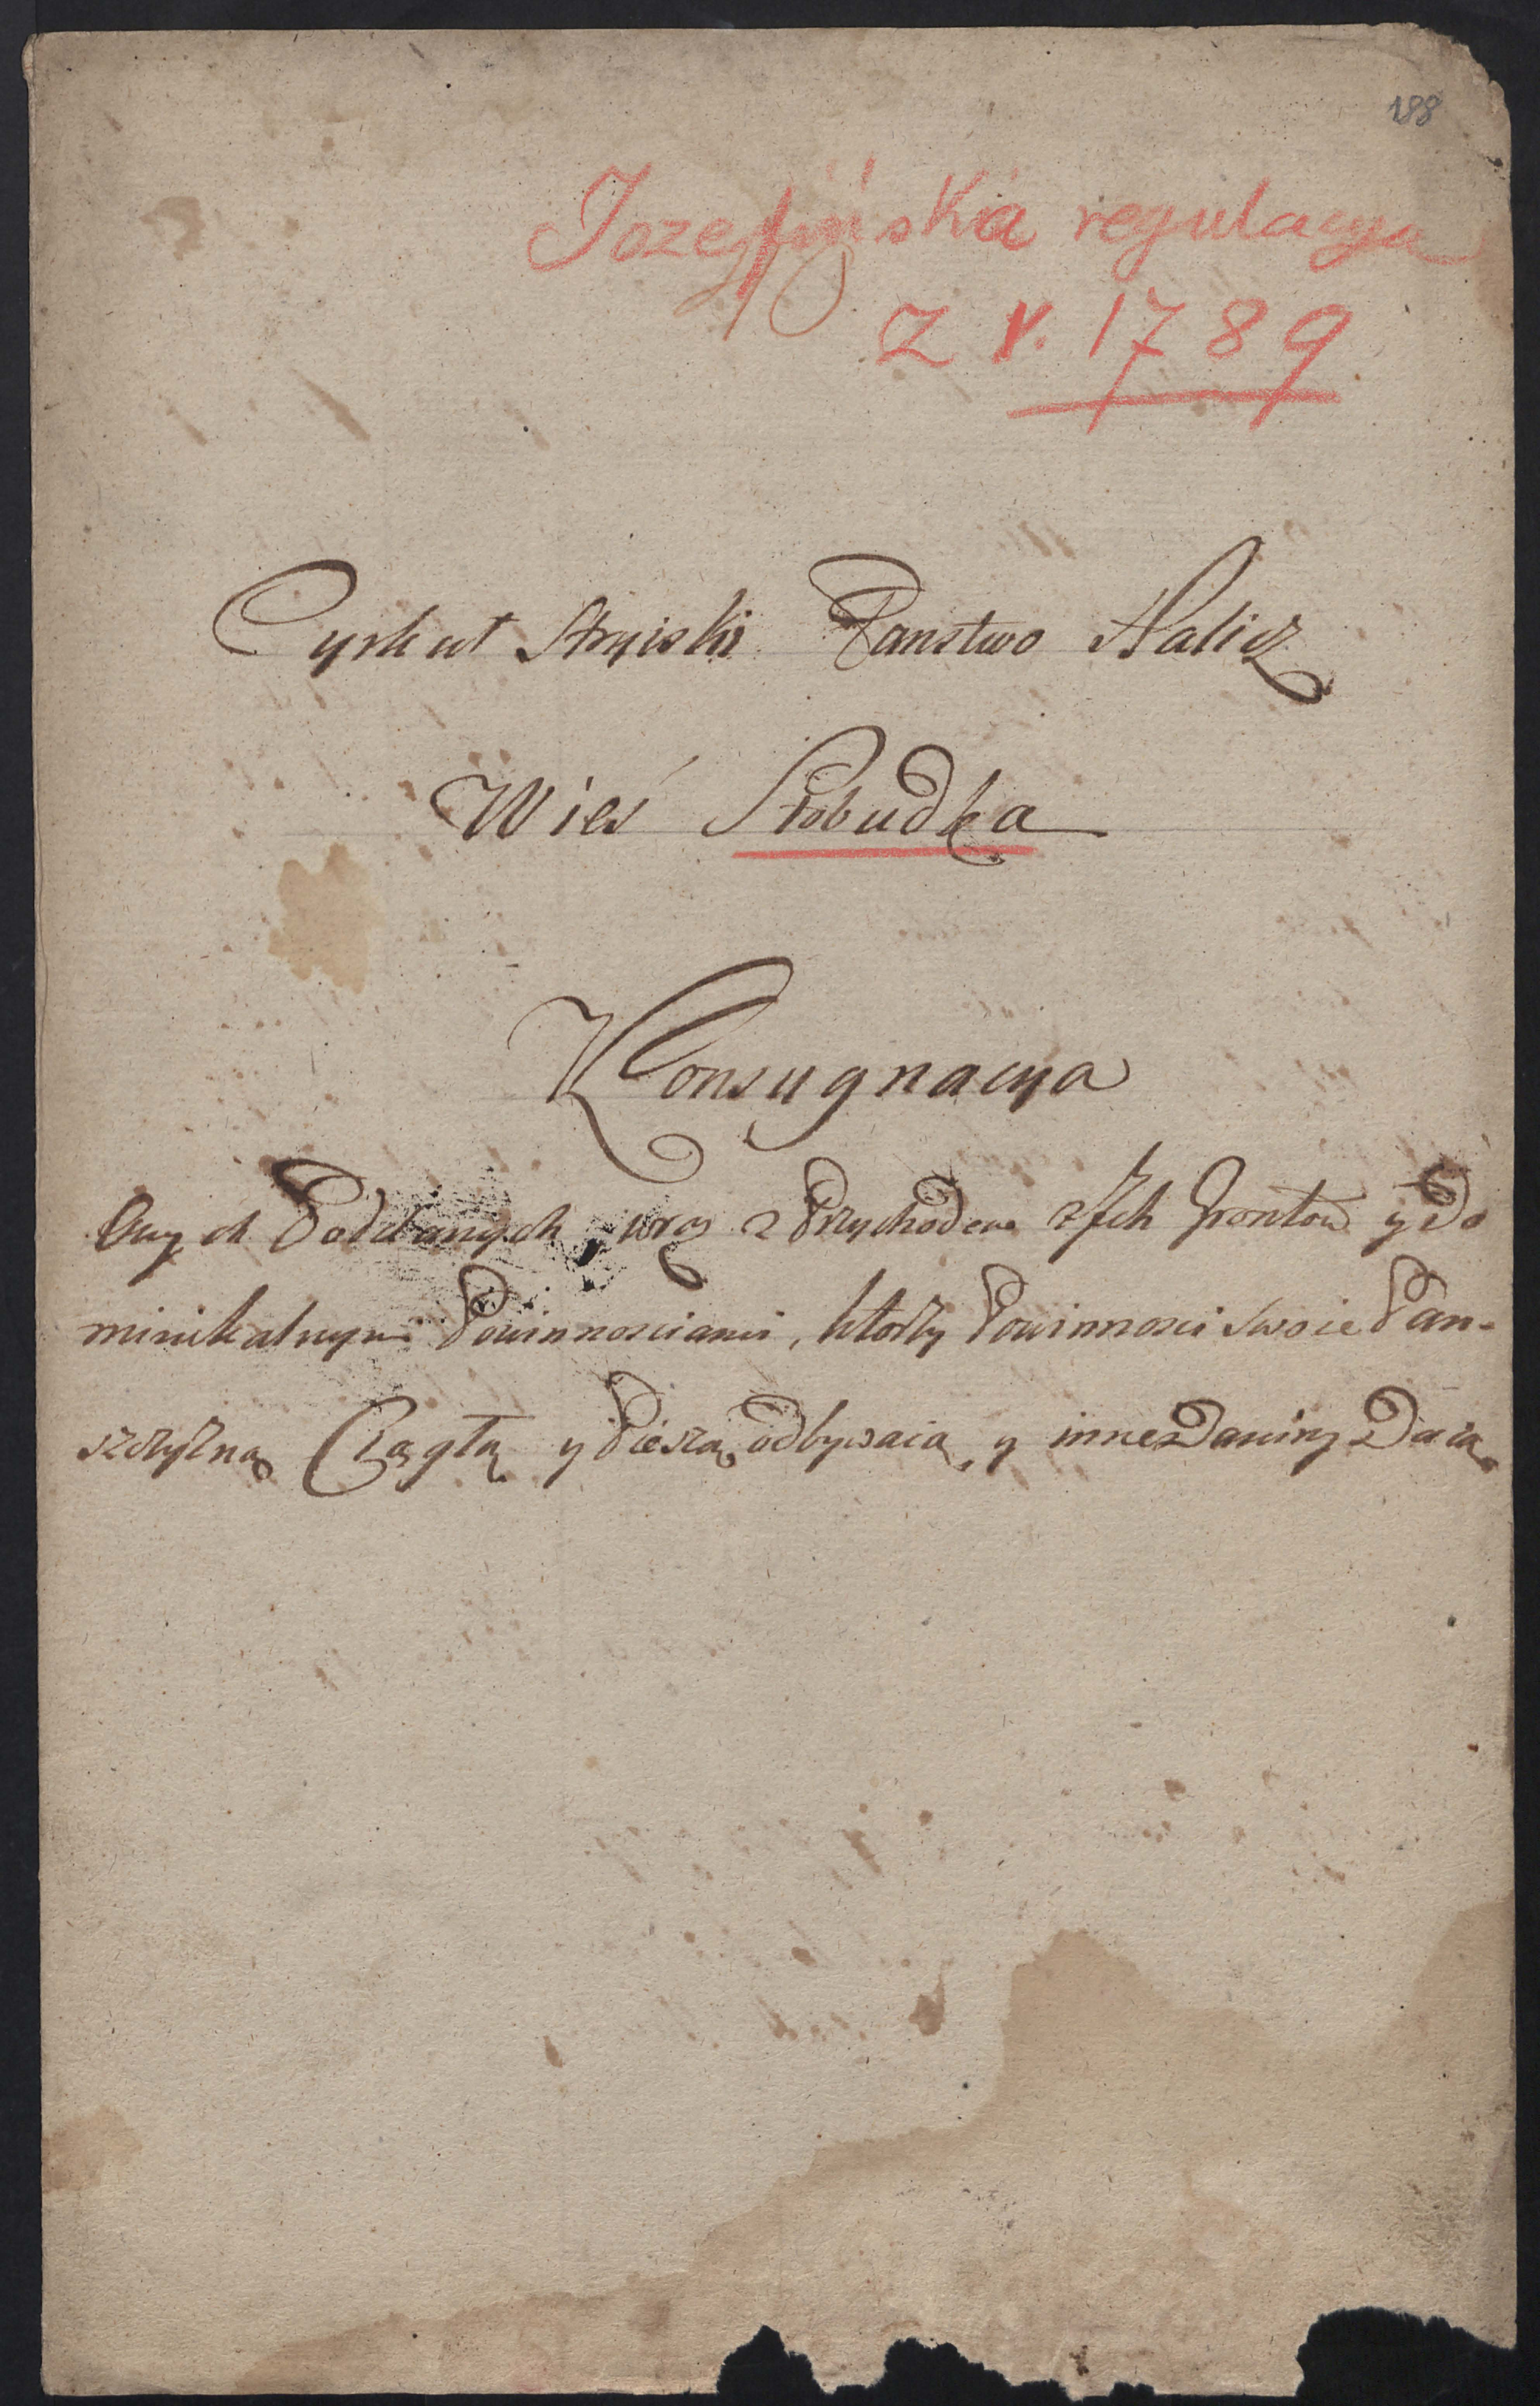 188
Jozefińska regulacya
z r. 1789
Cyrkuł Stryiski Panstwo Halicz
Wieś Słobudka
Konsygnacya
Owych Poddanych wraz z Przychodem z Jch Grontow y Do
minikalnymi Powinnosciami, ktorzy Powinnosci swoie Pan-
szczyzną Ciągłą y Pieszą odbywaią, y inne Daniny Daią